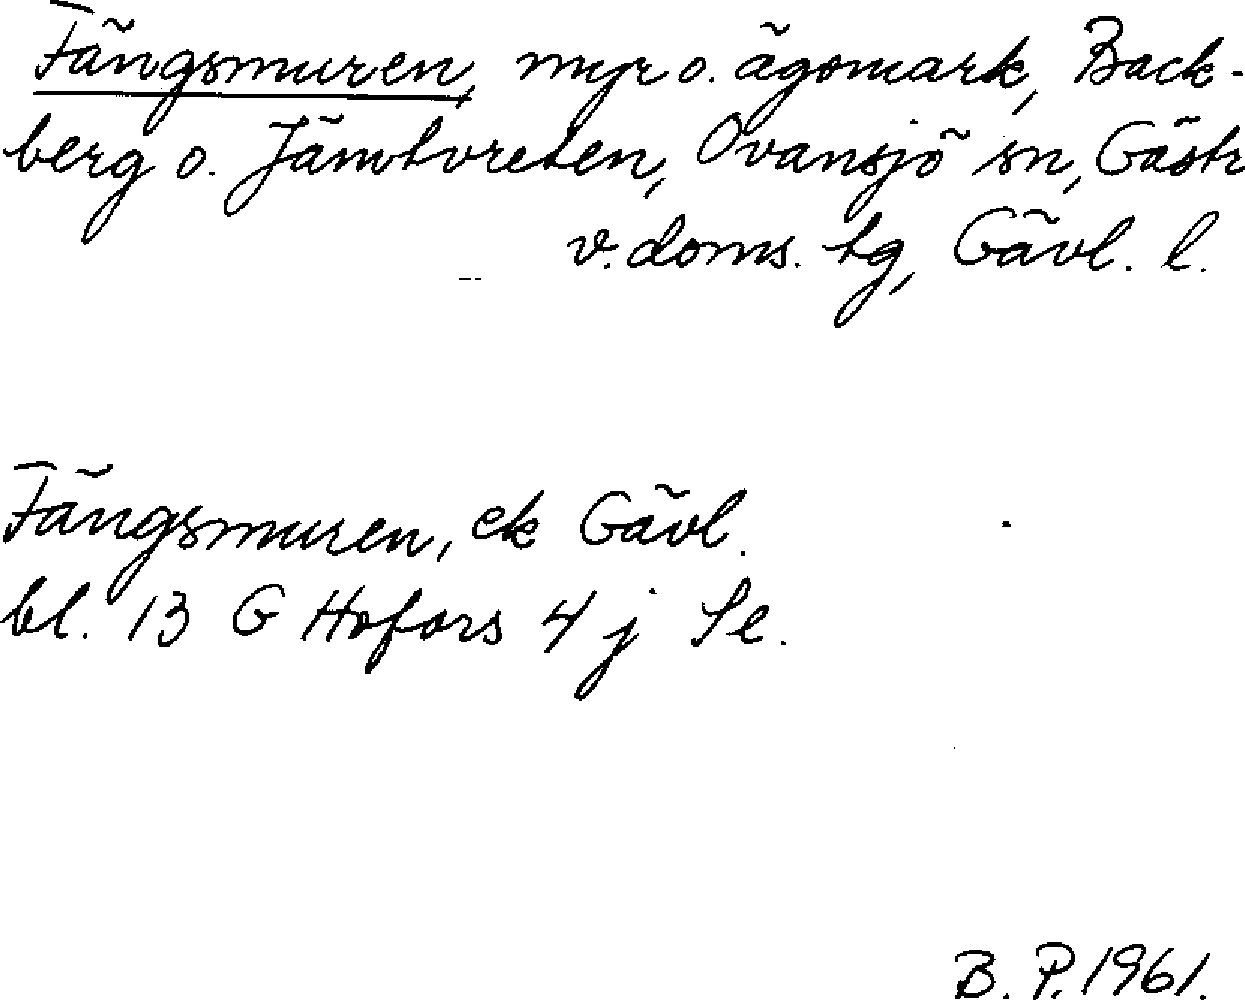 Fängsmuren, myr o. ägomark, Back-
berg o. Jämtvreten, Ovansjö sn, Gästr
v. doms. tg, Gävl. l.
Fängsmuren, ek Gävl.
bl. 13 G Hofors 4 j Se.
B. P. 1961.